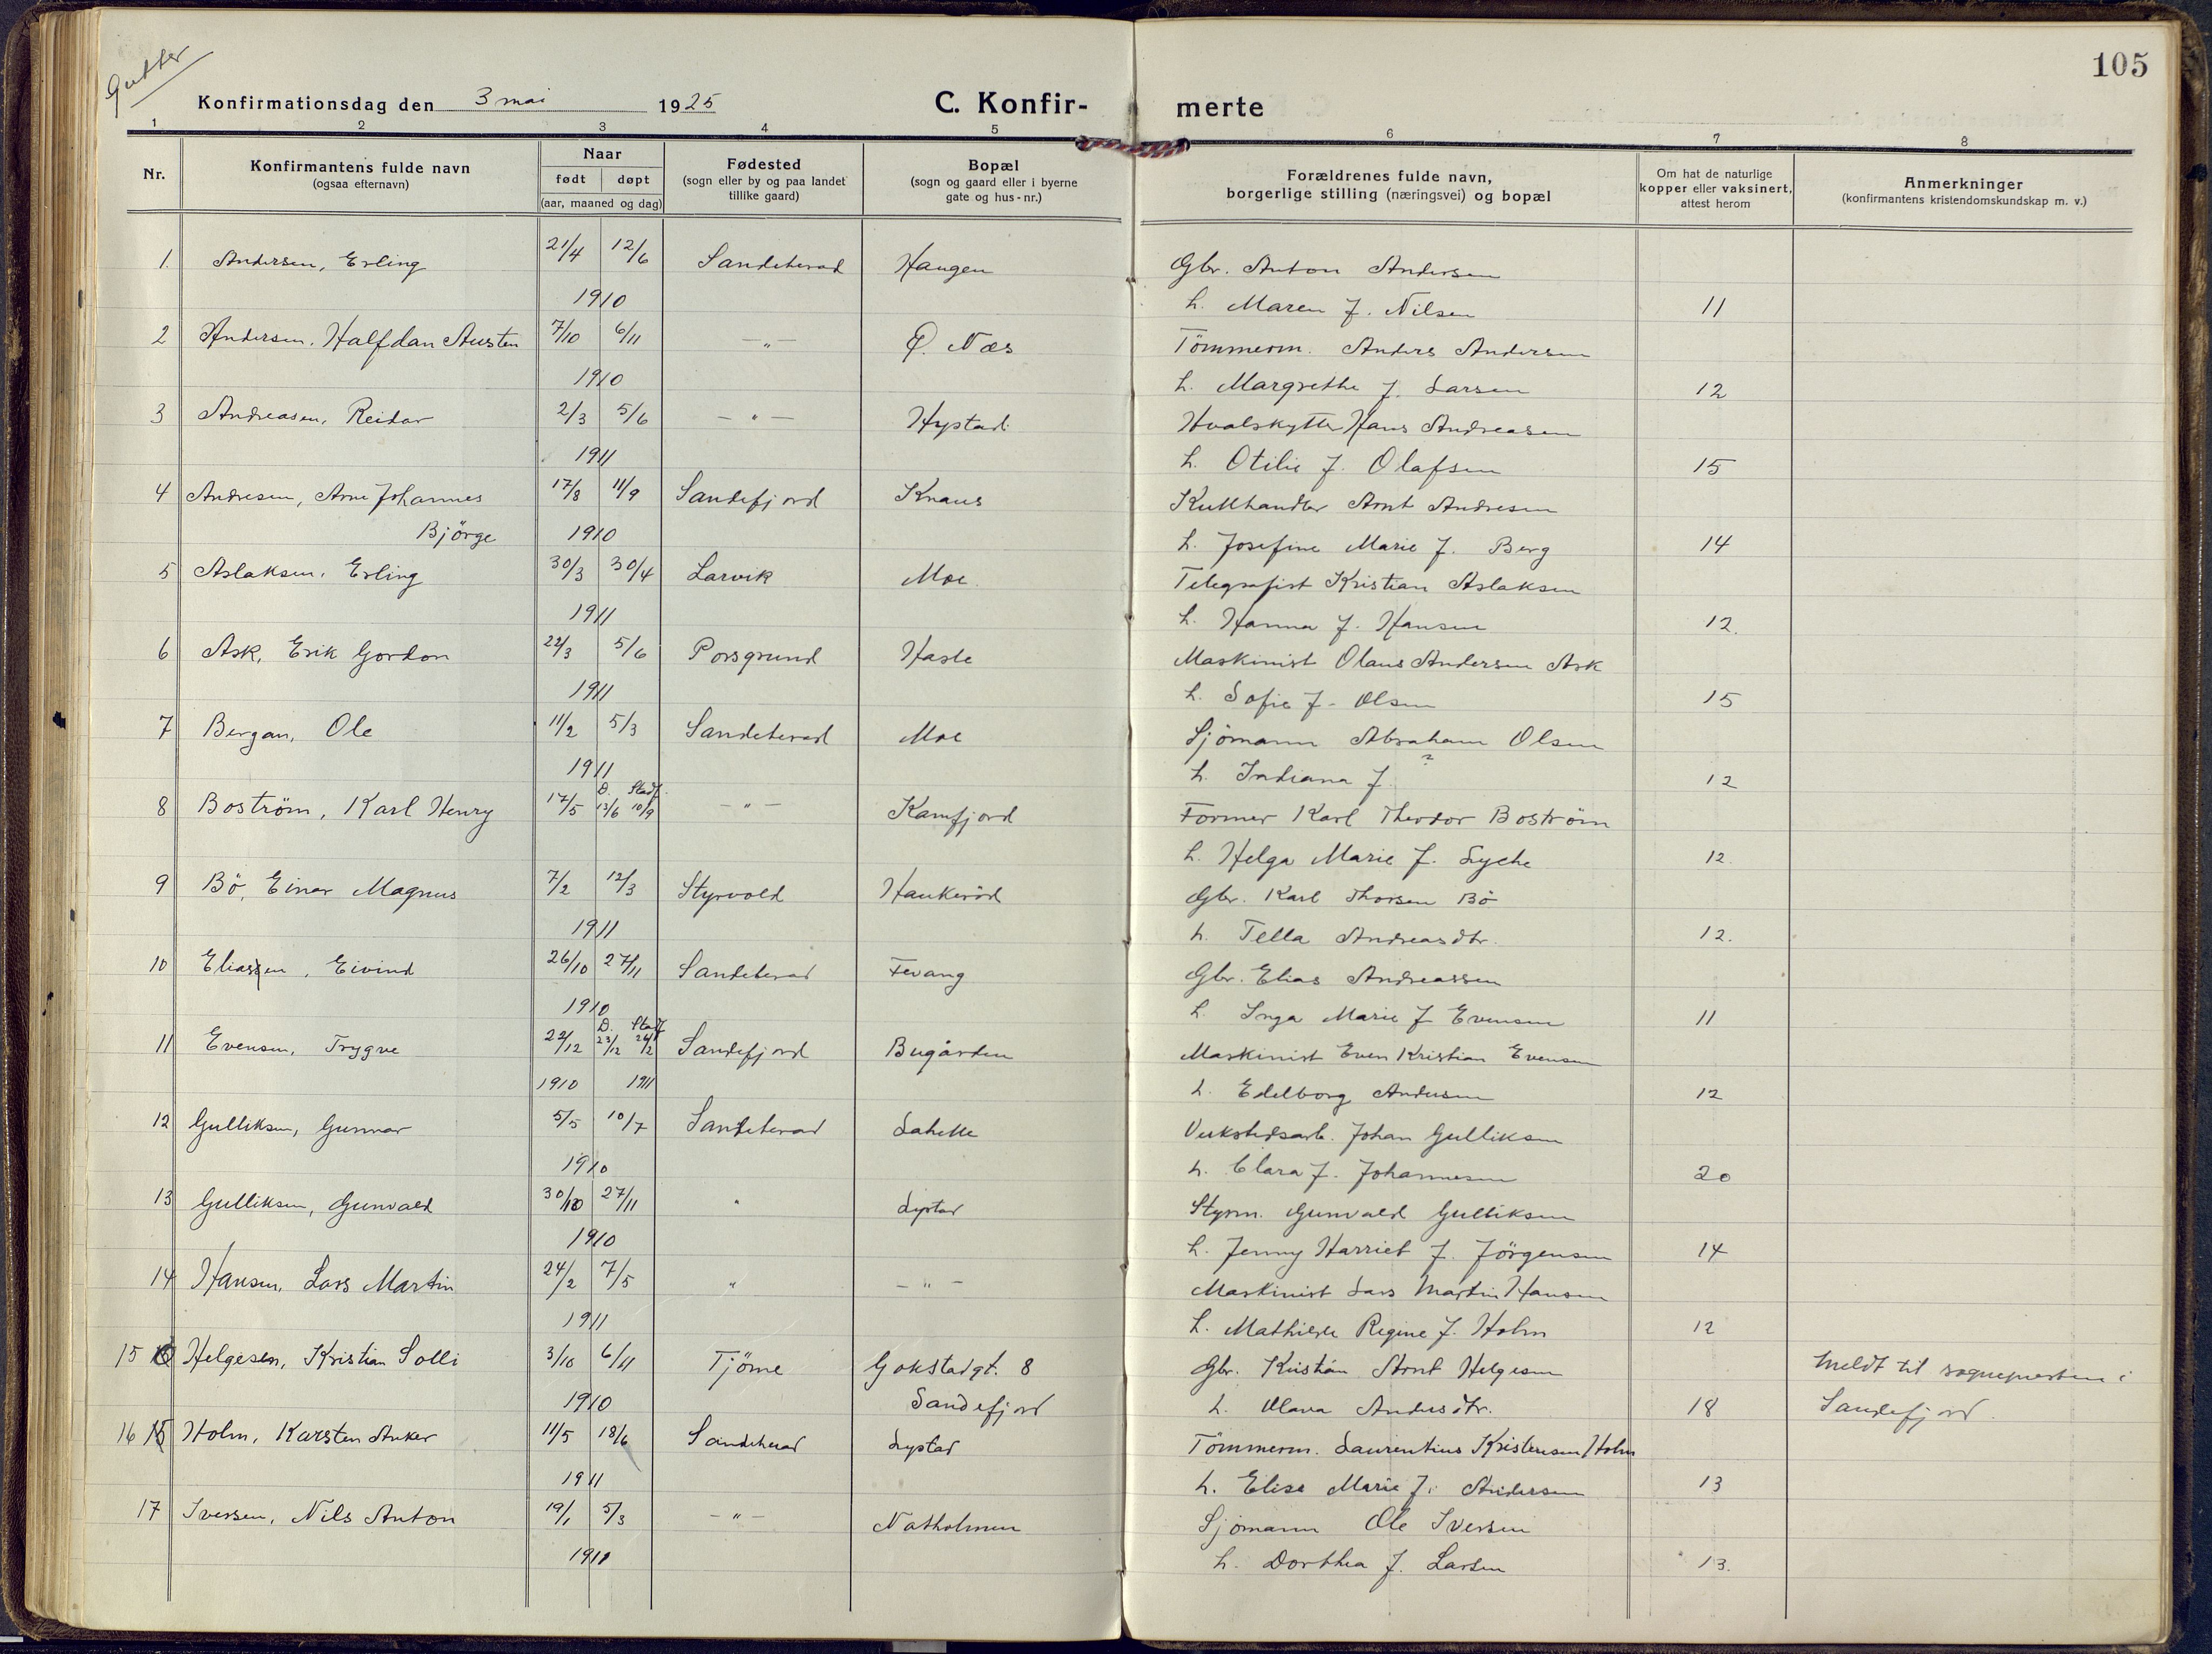 Gutter
105
Konfirmationsdag den 3 mai 1925
C. Konfir-merte
1 2 3 4 5 6 7 8
Nr.
Konfirmantens fulde navn
(ogsaa efternavn)
Naar
født døpt
(aar, maaned og dag)
Fødested
(sogn eller by og paa landet
tillike gaard)
Bopæl
(sogn og gaard eller i byerne
gate og hus-nr.)
Forældrenes fulde navn,
borgerlige stilling (næringsvei) og bopæl
Om hat de naturlige
kopper eller vaksinert,
attest herom
Anmerkninger
(konfirmantens kristendomskundskap m. v.)
1. Andersen, Erling 21/4 12/6 Sandeherad Haugen Gbr. Anton Andersen
1910 h. Maren f. Nilsen 11
2 Andersen, Halfdan Austen 7/10 6/11 — " — Ø. Næs Tömmerm. Anders Andersen
1910 h. Margrethe f. Larsen 12
3 Andreasen, Reidar 2/3 5/6 — " — Hystad Hvalskytter Hans Andreasen
1911 h. Otilie f. Olafsen 15
4 Andresen, Arne Johannes 17/8 11/9 Sandefjord Knaus Kullhandler Arnt Andresen
Björge 1910 h. Josefine Marie f. Berg 14
5 Aslaksen, Erling 30/3 30/4 Larvik Moe. Telegrafist Kristian Aslaksen
1911 h. Hanna f. Hansen 12.
6 Ask, Erik Gordon 22/3 5/6 Porsgrund Hasle Maskinist Olaus Andersen Ask
1911 h. Sofie f. Olsen 15
7 Bergan, Ole 11/2 5/3 Sandeherad Moe Sjömann Abraham Olsen
1911 h. Indiana f. ? 12
D. Stadf.
8 Boström, Karl Henry 17/5 13/6 10/9 — " — Kamfjord Former Karl Theodor Boström
h. Helga Marie f. Lyche 12.
9 Bö, Einar Magnus 7/2 12/3 Styrvold Haukeröd Gbr. Karl Thorsen Bö
1911 h. Tella Andreasdtr. 12.
10 Eliassen, Eivind 26/10 27/11 Sandeherad Fevang Gbr. Elias Andreassen
1910 h. Inga Marie f Evensen 11
D. Stadf
11 Evensen, Trygve 22/12 23/12 26/2 Sandefjord Bugården Maskinist Even Kristian Evensen
1910 1911 h. Edelborg Andersen 12
12 Gulliksen, Gunnar 5/5 10/7 Sandeherad Lahelle Verkstedsarb. Johan Gulliksen
1910 h. Clara f. Johannesen 20
13 Gulliksen, Gunvald 30/10 27/11 " Lystad Styrm. Gunvald Gulliksen
1910 h. Jenny Harriet f. Jörgensen 14
14 Hansen, Lars Martin 24/2 7/5 " — " — Maskinist Lars Martin Hansen
1911 h. Mathilde Regine f. Holm 12
15 Helgesen, Kristian Solli 3/10 6/11 Tjöme Gokstadgt. 8 Gbr. Kristian Arnt Helgesen Meldt til sognepresten i
1910 Sandefjord h. Olava Andersdtr. 18 Sandefjord.
16 15 Holm, Karsten Anker 11/5 18/6 Sandeherad Lystad Tömmerm. Laurentius Kristensen Holm
1911 h. Elise Marie f. Andersen 13
17 Iversen, Nils Anton 19/1 5/3 — " — Natholmen Sjömann Ole Iversen
1911 h. Dorthea f. Larsen 13.